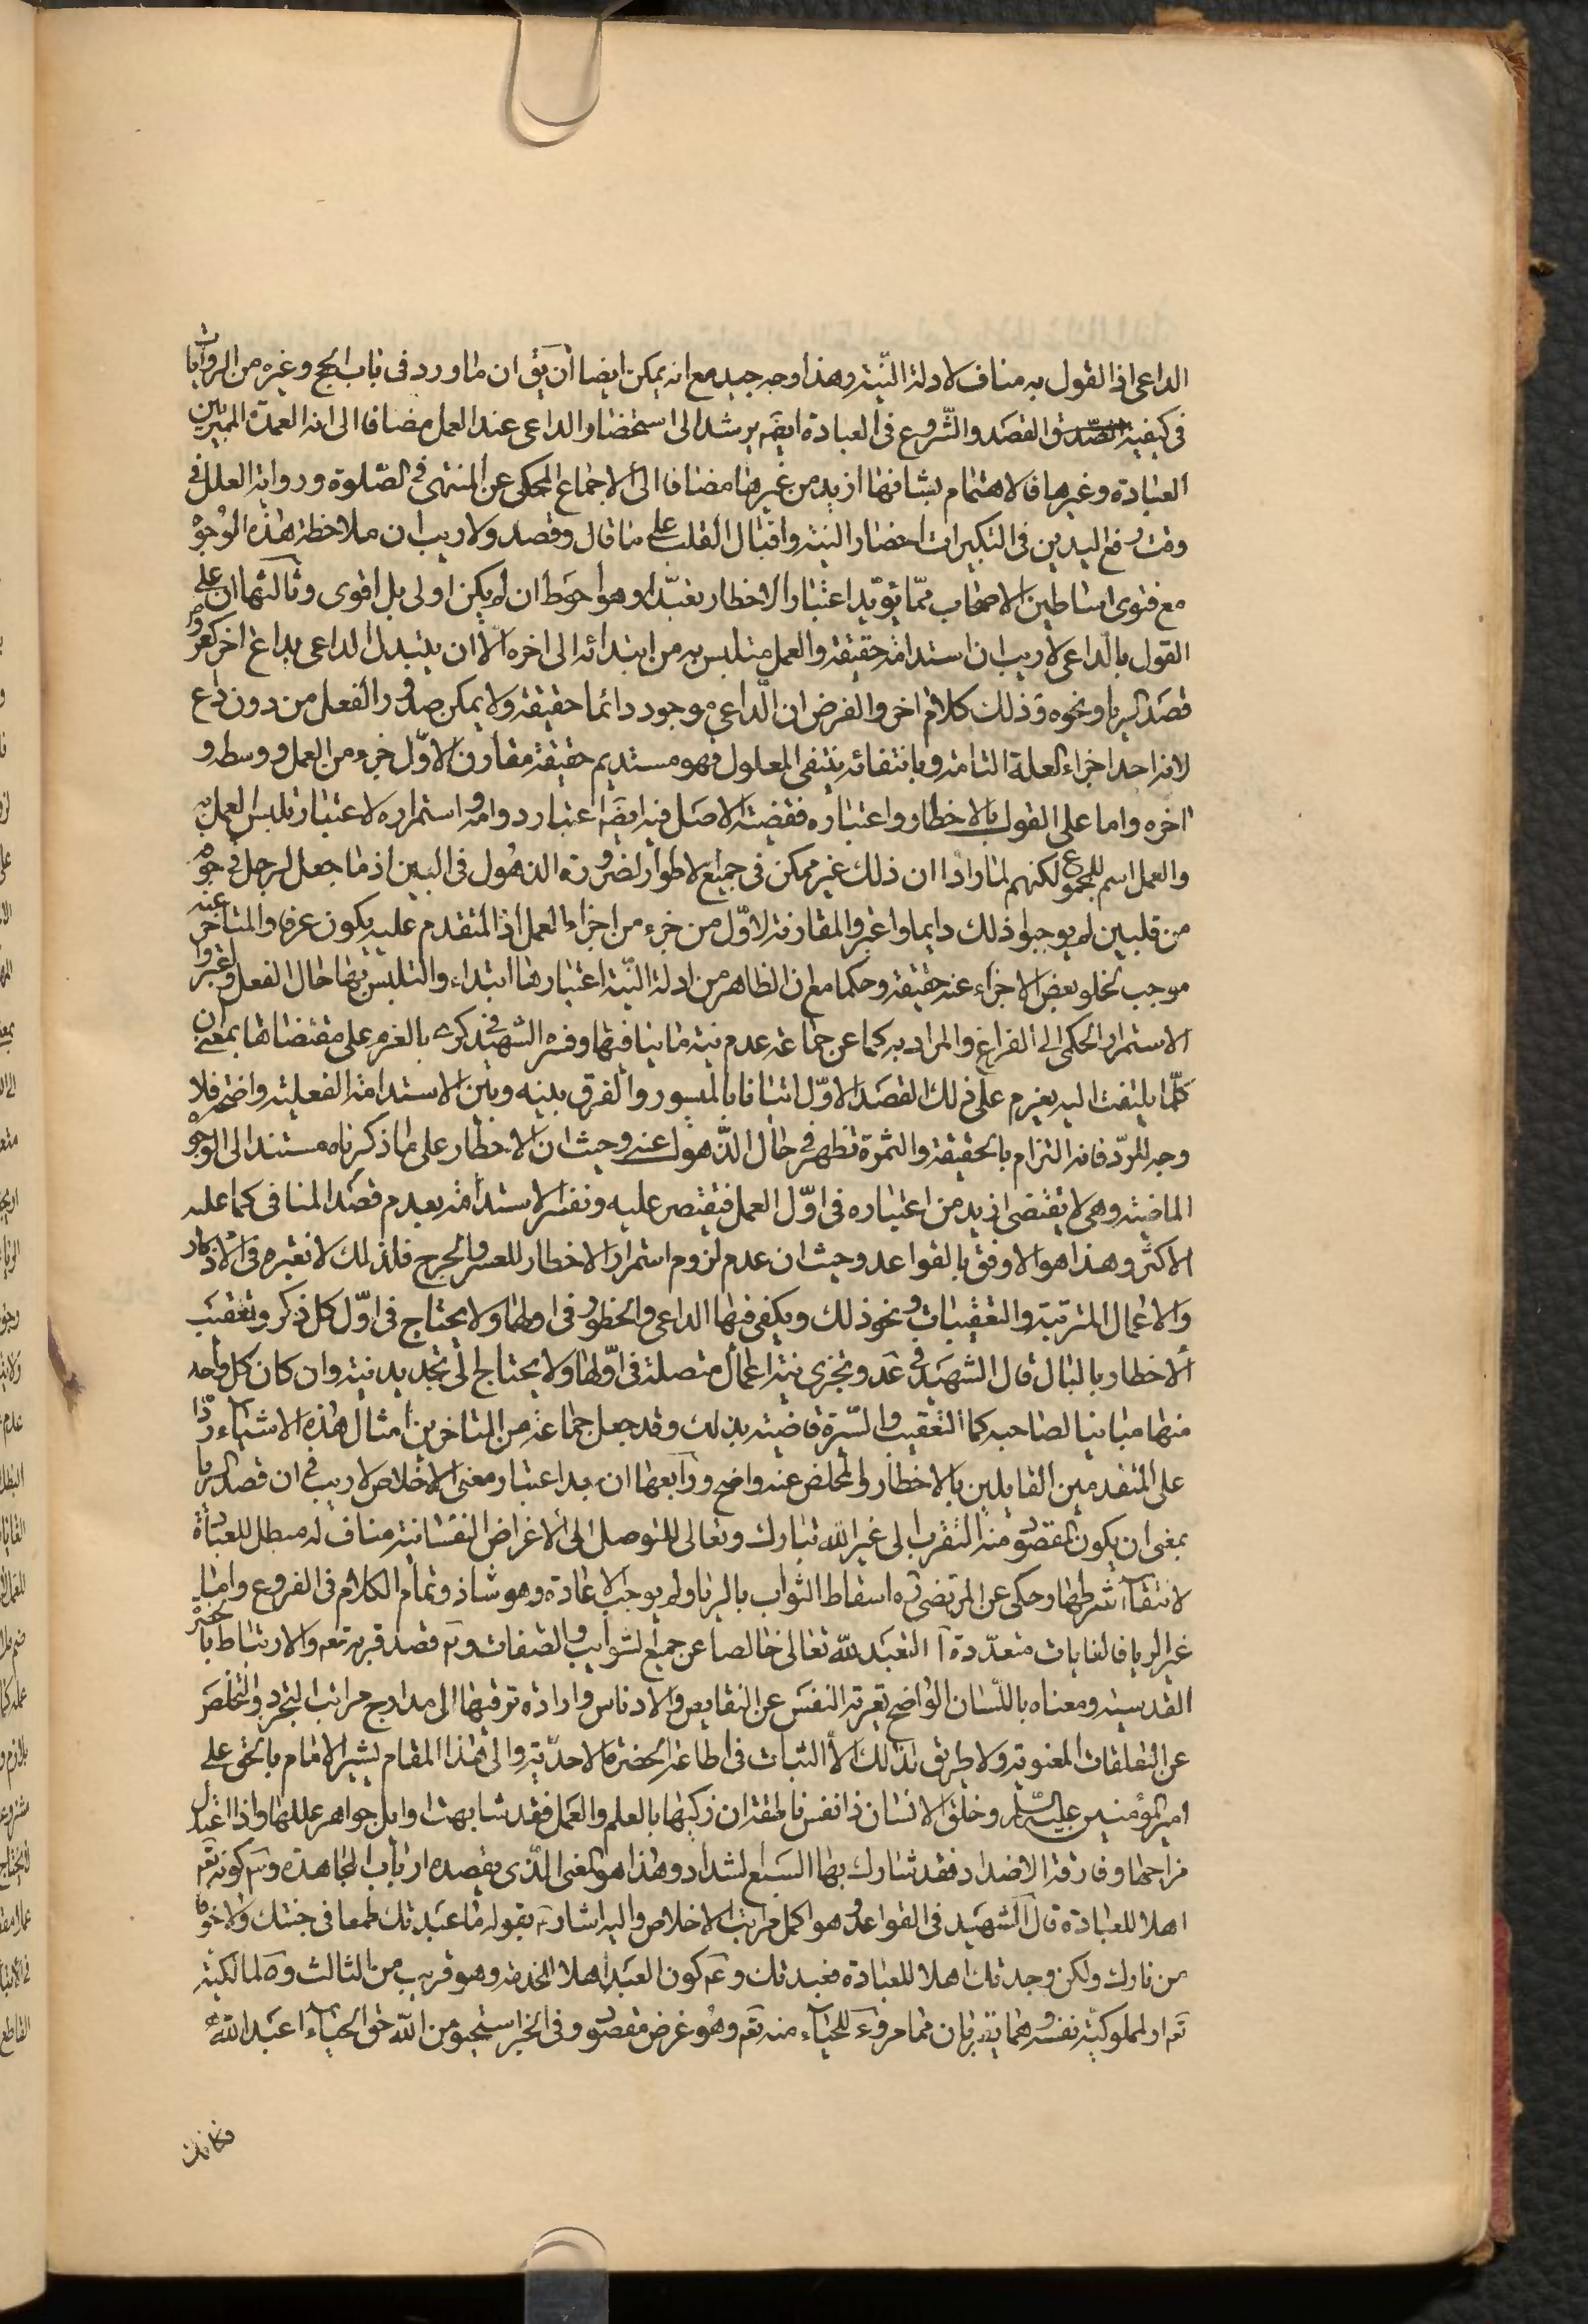 الداعی اذ القول به مناف لادلة النّیة وهذا وجه جید مع انه یمکن ایضا ان یق ان ما ورد فی باب الحج وغیره من الروایات
فی کیفیة القصد والشّروع فی العبادة ایضم یرشد الی استحضار الداعی عند العمل مضافا الی انه العمدة الممیز بین
العبادة وغیرها فالاهتمام بشانها ازید من غیرها مضافا الی الاجماع المحکی عن المنتهی فی الصّلوة وروایة العلل فی
وقت رفع الیدین فی التکبیرات احضار النیة واقبال القلب علی ما قال وقصد ولا ریب ان ملاحظة هذه الوجوه
مع فتوی اساطین الاصحاب ممّا یؤیّد اعتبار الاخطار تعبّدا وهو احوط ان لم یکن اولی بل اقوی وثالثها ان علی
القول بالداعی لا ریب ان استدامته حقیقة والعمل متلبس به من ابتدائه الی اخره الّا ان یتبدل الداعی بداع اخر کعروض
قصد الریا ونحوه وذلک کلام اخر والفرض ان الّداعی موجود دائما حقیقة ولا یمکن صدور الفعل من دون داع
لانه احد اجزاء العلة التامة وبانتفائه ینتفی المعلول فهو مستدیم حقیقة مقارن لاوّل جزء من العمل ووسطه و
اخره واما علی القول بالاخطار واعتباره فقضیة الاصل فیه ایضا اعتبار دوامه واستمراره لاعتبار تلبس العمل به
والعمل اسم للمجموع لکنهم لما راوا ان ذلک غیر ممکن فی جمیع الاطوار لضرورة الذهول فی البین اذ ما جعل لرجل فی جوفه
من قلبین لم یوجبوا ذلک دایما واعتبروا المقارنة لاوّل من جزء من اجزاء العمل اذ المتقدم علیه یکون عزما والمتاخر عنه
موجب لخلو بعض الاجزاء عنه حقیقة وحکما مع ان الظاهر من ادلة النّیة اعتبارها ابتداء والتلبس بها حال الفعل واعتبروا
الاستمرار الحکمی الی الفراغ والمراد به کما عن جماعة عدم نیة ما ینافیها وفسّره الشهید فی کری بالعزم علی مقتضاها بمعنی ان
کلّما یلتفت الیه یعزم علی ذلک القصد الاوّل اتیانا بالمیسور والفرق بینه وبین الاستدامة الفعلیة واضح فلا
وجه للردّ فانه التزام بالحقیقة والثمرة تظهر فی حال الذّهول عنه وحیث ان الاخطار علی ما ذکرناه مستند الی الوجوه
الماضیة وهی لا یقتضی ازید من اعتباره فی اوّل العمل فیقتصر علیه ونفسّر الاستدامة بعدم قصد المنافی کما علیه
الاکثر وهذا هو الاوفق بالقواعد وحیث ان عدم لزوم استمرار الاخطار للعسر والحرج فلذلک لا نعتبره فی الاذکار
والاعمال المترتبة والتعقیبات ونحو ذلک ویکفی فیها الداعی والخطور فی اولها ولا یحتاج فی اوّل کل ذکر وتعقیب
الاخطار بالبال قال الشهید فی عد وتجزی نیة اعمال متصلة فی اوّلها ولا یحتاج الی تجدید نیة وان کان کل واحد
منها مباینا لصاحبه کما التعقیب والسّیرة قاضیة بذلک وقد جعل جماعة من المتاخرین امثال هذه الاشیاء ردّا
علی المتقدمین القایلین بالاخطار والمخلص عنه واضح ورابعها ان بعد اعتبار معنی الاخلاص لا ریب فی ان قصد الریا
بمعنی ان یکون المقصود منه التقرب الی غیر الله تبارک وتعالی للتوصل الی الاغراض النفسانیة مناف له مبطل للعبادة
لانتفاء شرطها وحکی عن المرتضی ره اسقاط الثواب بالریا ولم یوجب الاعادة وهو شاذ وتمام الکلام فی الفروع واما
غیر الریا فالغایات متعدّدة آ التعبد لله تعالی خالصا عن جمیع الشوایب والصفات وب قصد قربه تعم والارتباط بالحضرة
القدسیة ومعناه باللّسان الواضح تعریة النفس عن النقایص والادناس وارادة ترقیها الی مدارج مراتب التجرد والتخلص
عن التعلقات المعنویة ولا طریق لذلک الا الثبات فی اطاعة الحضرة الاحدّیة والی هذا المقام یشیر الامام بالحق علی
امیر المؤمنین علیه السّلم وخلق الانسان ذا نفس ناطقة ان زکیها بالعلم والعمل فقد شابهت اوایل جواهر عللها واذا اعتدل
مزاجها وفارقت الاضداد فقد شارک بها السبع الشداد وهذا هو المعنی الّذی یقصده ارباب المجاهدة وج کونه تعم
اهلا للعبادة قال الشهید فی القواعد وهو اکمل مراتب الاخلاص والیه اشار بقوله ما عبدتک طمعا فی جنتک ولا خوفا
من نارک ولکن وجدتک اهلا للعبادة فعبدتک ود کون العبد اهلا للخدمة وهو قریب من الثالث وه المالکیته
تعم او المملوکیة نفسه وهما یقربان مما مر و للحیاء منه تعم وهو غرض مقصود وفی الخبر استحیوا من الله حق الحیاء اعبد الله
فکانک